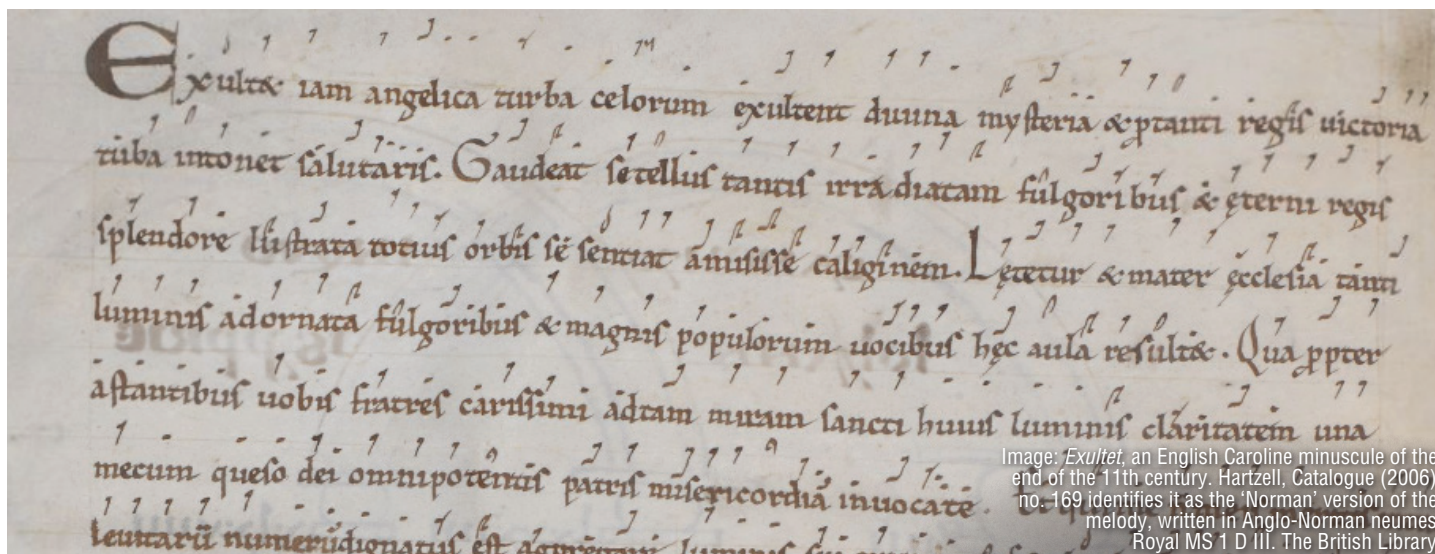 Exult& iam angelica turba celorum exultent diuina mysteria & ꝓtanti regis uictoria
tuba intonet salutaris. Gaudeat se tellus tantis irradiatam fulgoribus & ęterni regis
splendore lustrata totius orbis se sentiat amisisse caliginem. Lętetur & mater ęcclesia tanti
luminis adornata fulgoribus & magnis populorum uocibus hęc aula result&. Qua ꝓpter
astantibus uobis fratres carissimi adtam miram sancti huius luminis claritatem una
mecum queso dei omnipotentis patris misericordiā inuocate.
leuitarū numerū dignatus est aggregari luminis sui
Image: Exultet, an English Caroline minuscule of the
end of the 11th century. Hartzell, Catalogue (2006)
no. 169 identifies it as the ‘Norman’ version of the
melody, written in Anglo-Norman neumes
Royal MS 1 D III. The British Library